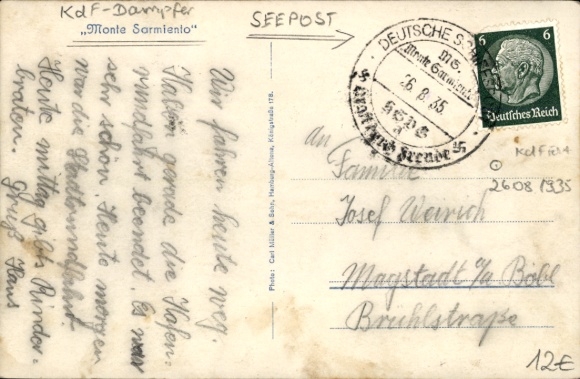 KdF-Dampfer
„Monte Sarmiento“
SEEPOST
Wir fahren heute weg.
Haben grade die Hafen-
rundfahrt beendet. Es war
sehr schön. Heute morgen
war die Stadtrundfahrt.
Heute mittag gibts Rinder-
braten. Gruß Hans
Photo: Carl Müller & Sohn, Hamburg-Altona, Königstraße 176.
DEUTSCHE SEEPOST
M.S.
„Monte Sarmiento“
26.8.35.
Kraft durch Freude
6 6
Deutsches Reich
KdF
26 08 1935
an
Familie
Josef Weirich
Magstadt i/a Böbl
Brühlstraße
12€